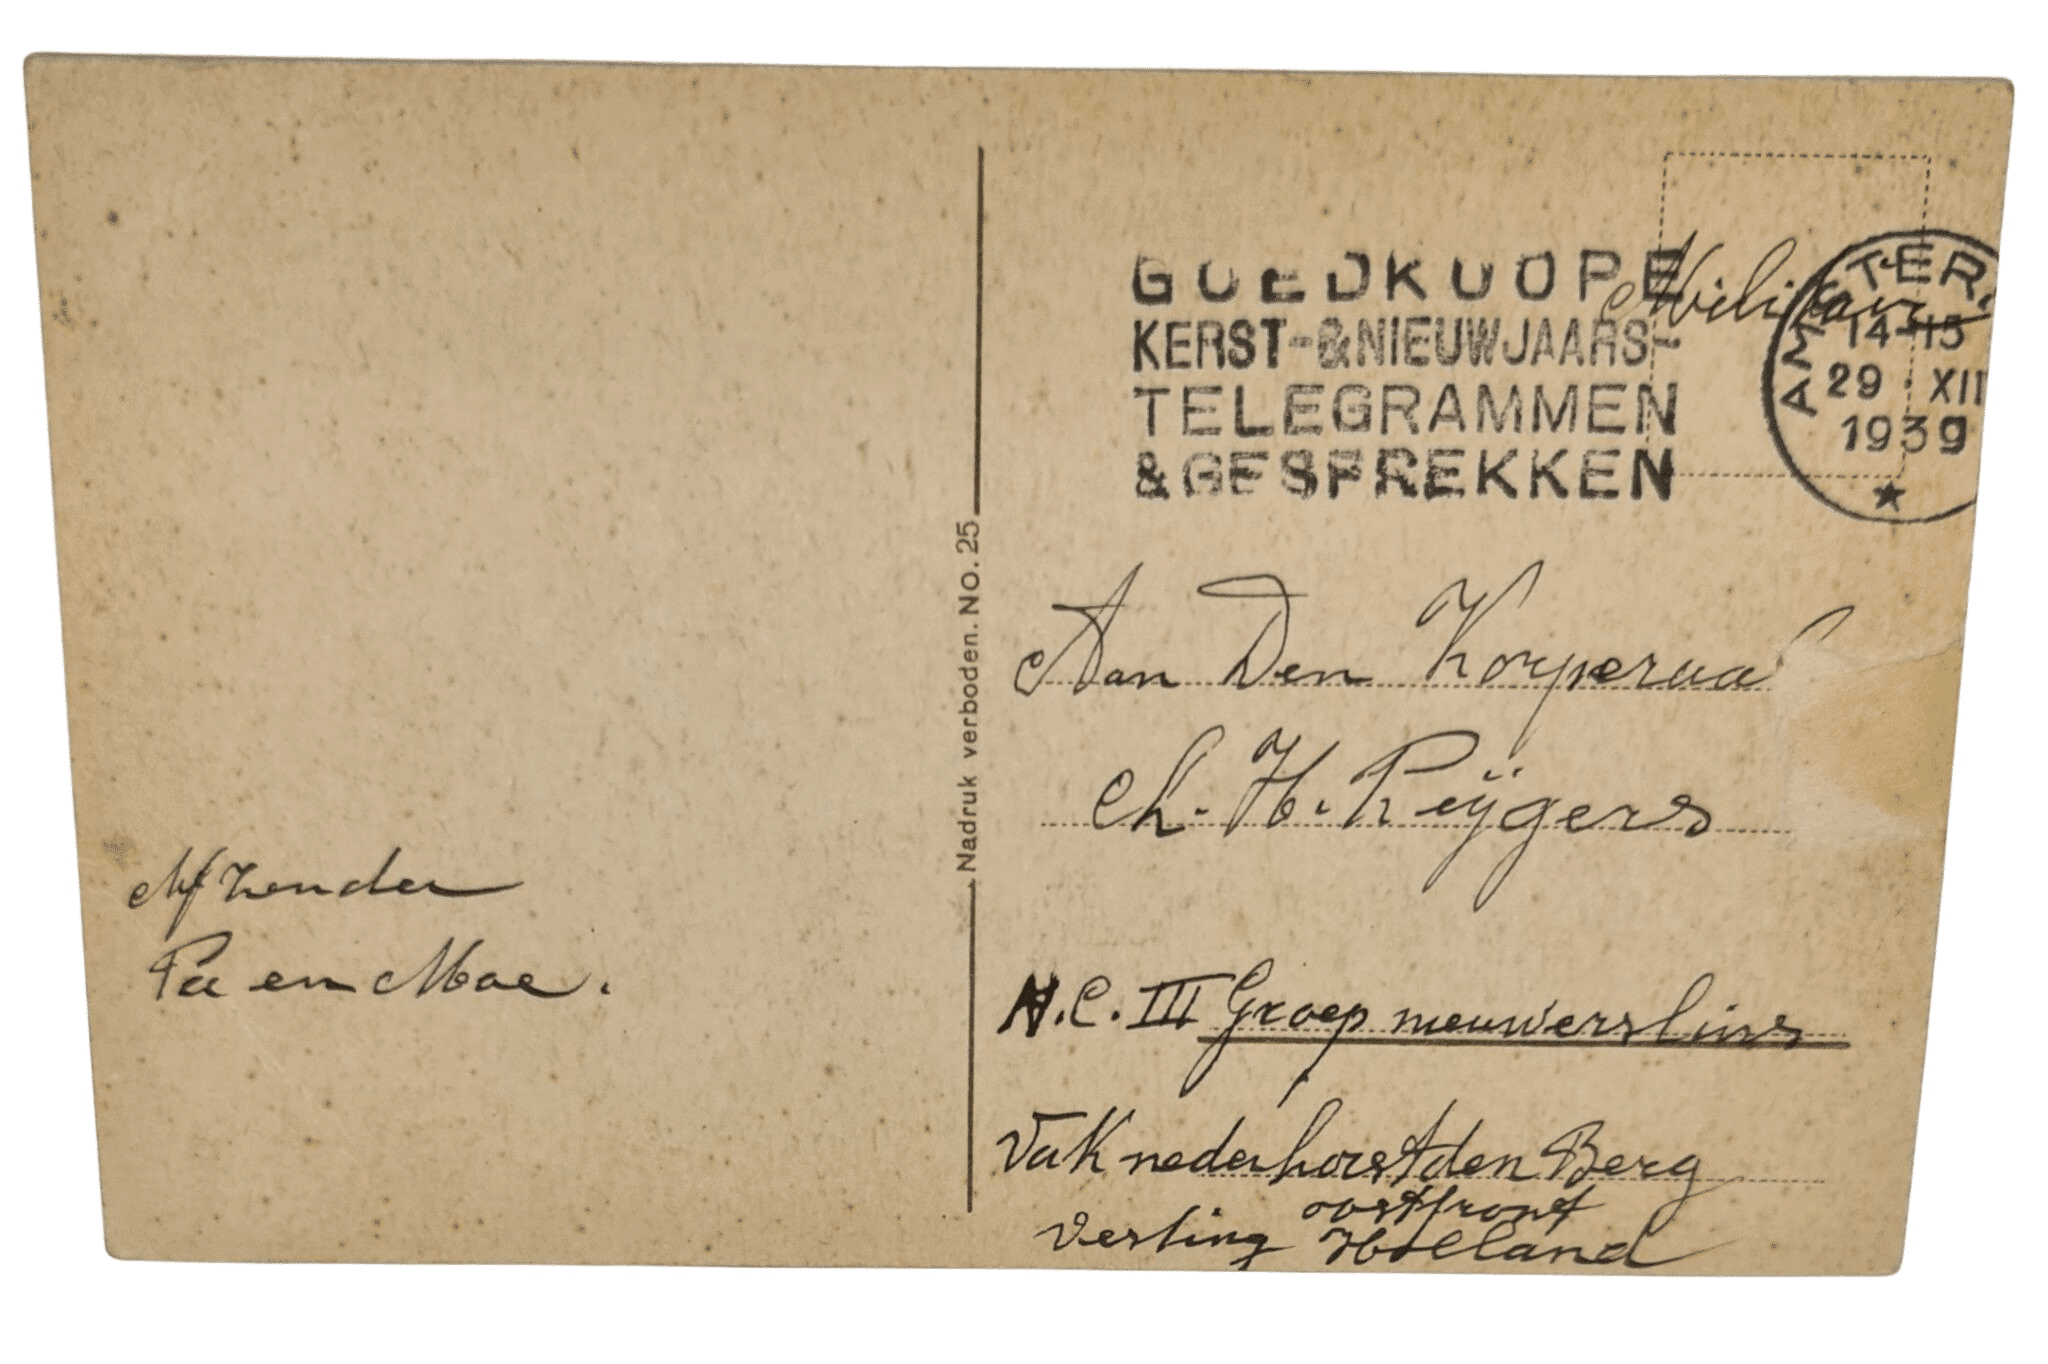 GOEDKOOPE
KERST-&NIEUWJAARS-
TELEGRAMMEN
&GESPREKKEN
Militair
AMSTER
14-15
29 XII
1939
Nadruk verboden. NO. 25
Afzender
Pa en Moe.
Aan Den Korperaal
Ch. H. Reÿgers
N.C. III Groep nieuwersluis
Vak nederhorst den Berg
vesting oostfront
Holland